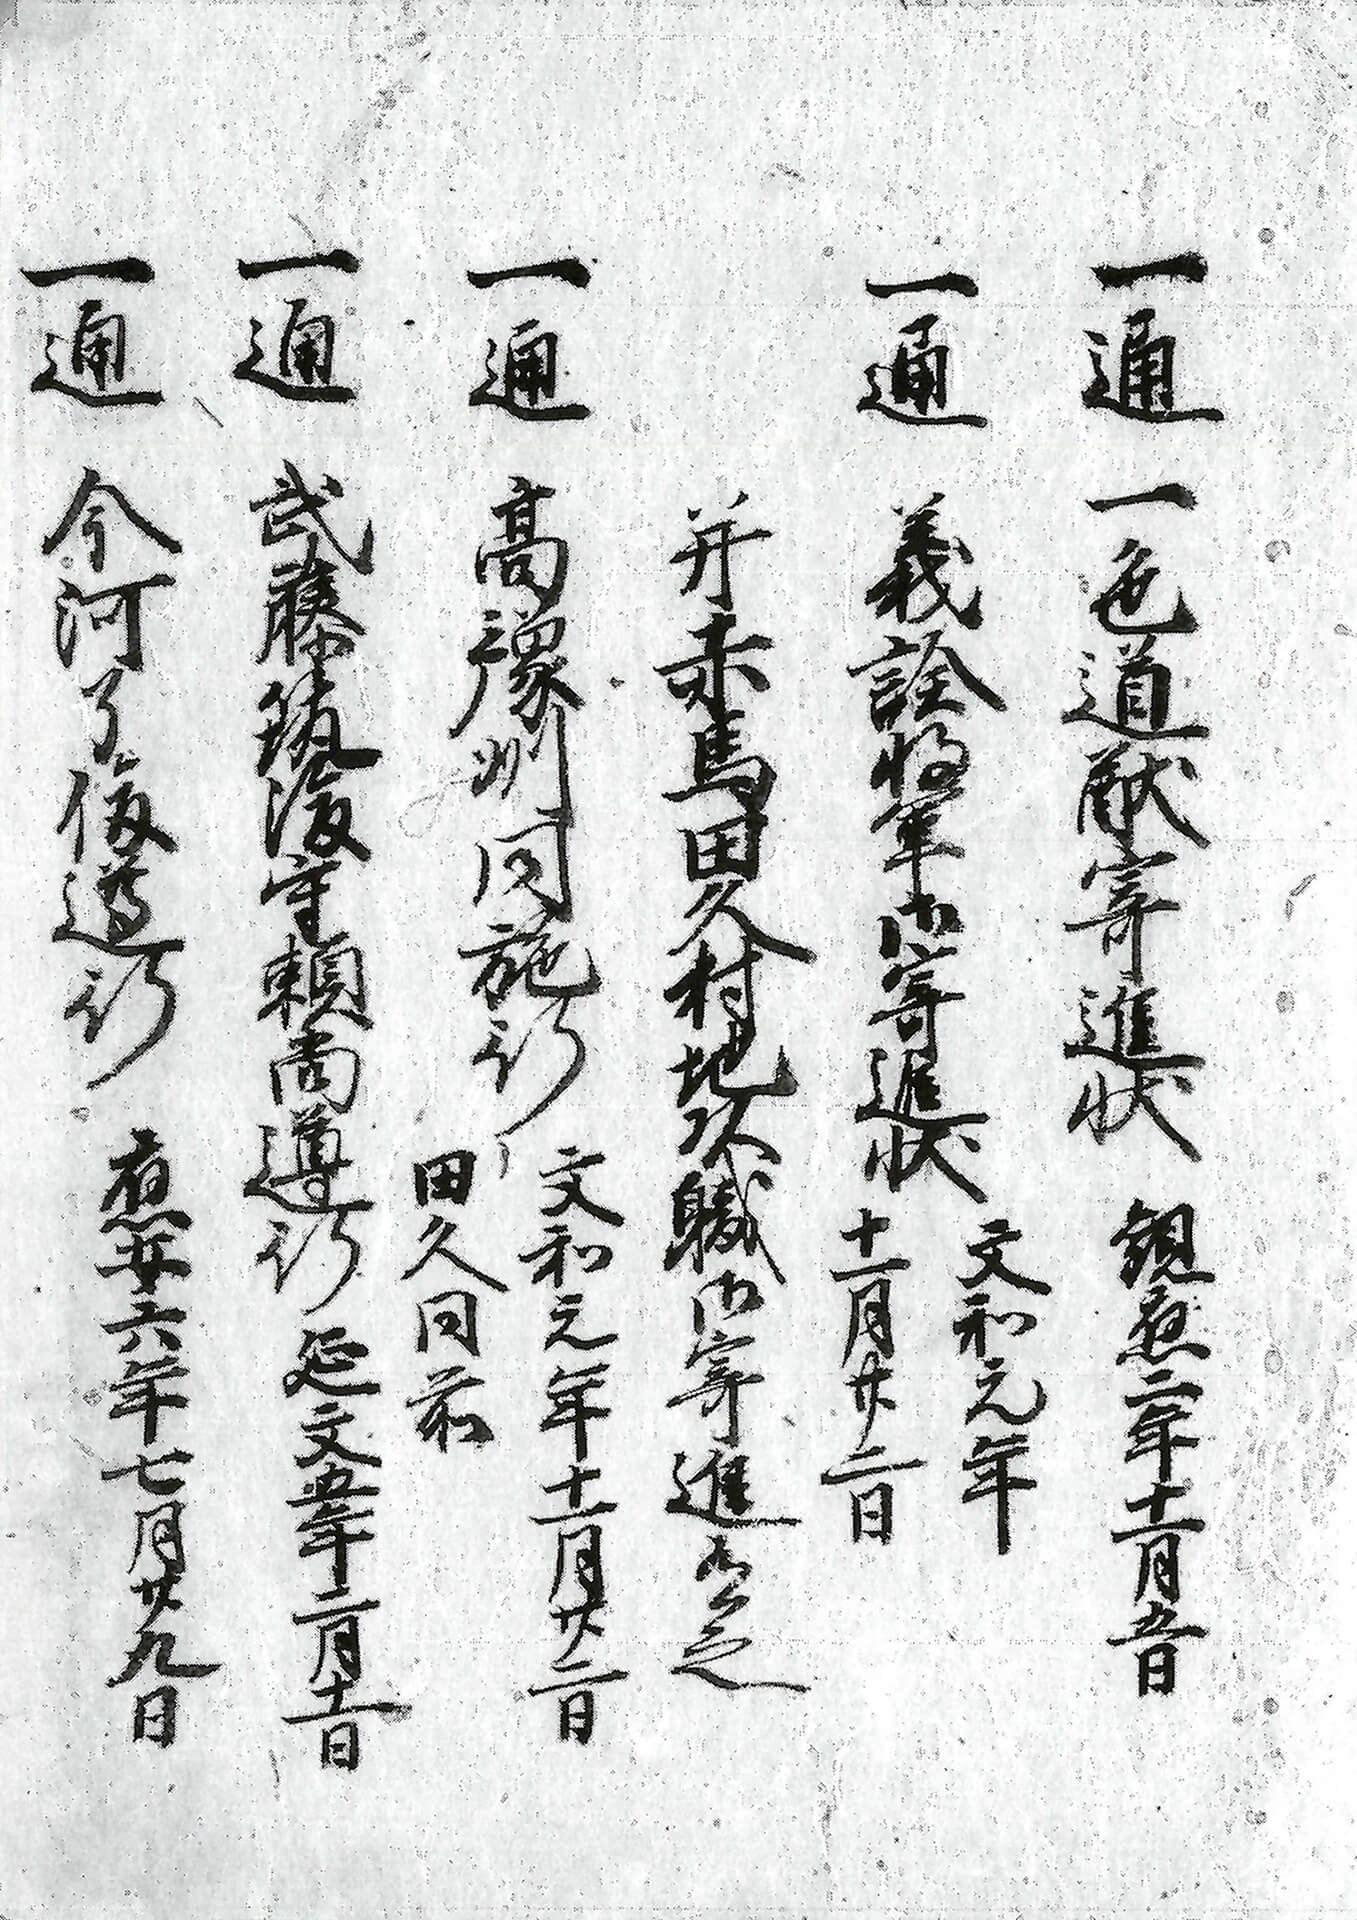 一通 一色道猷寄進状 観應二年十一月五日
一通 義詮将軍御寄進状 文和元年
十一月廿二日
并赤馬田久村地頭職御寄進有之
一通 高豫州同施行 文和元年十一月廿二日
田久同前
一通 武藤筑後守頼尚遵行 延文五年二月十一日
一通 今河了俊遵行 應安六年七月廿九日